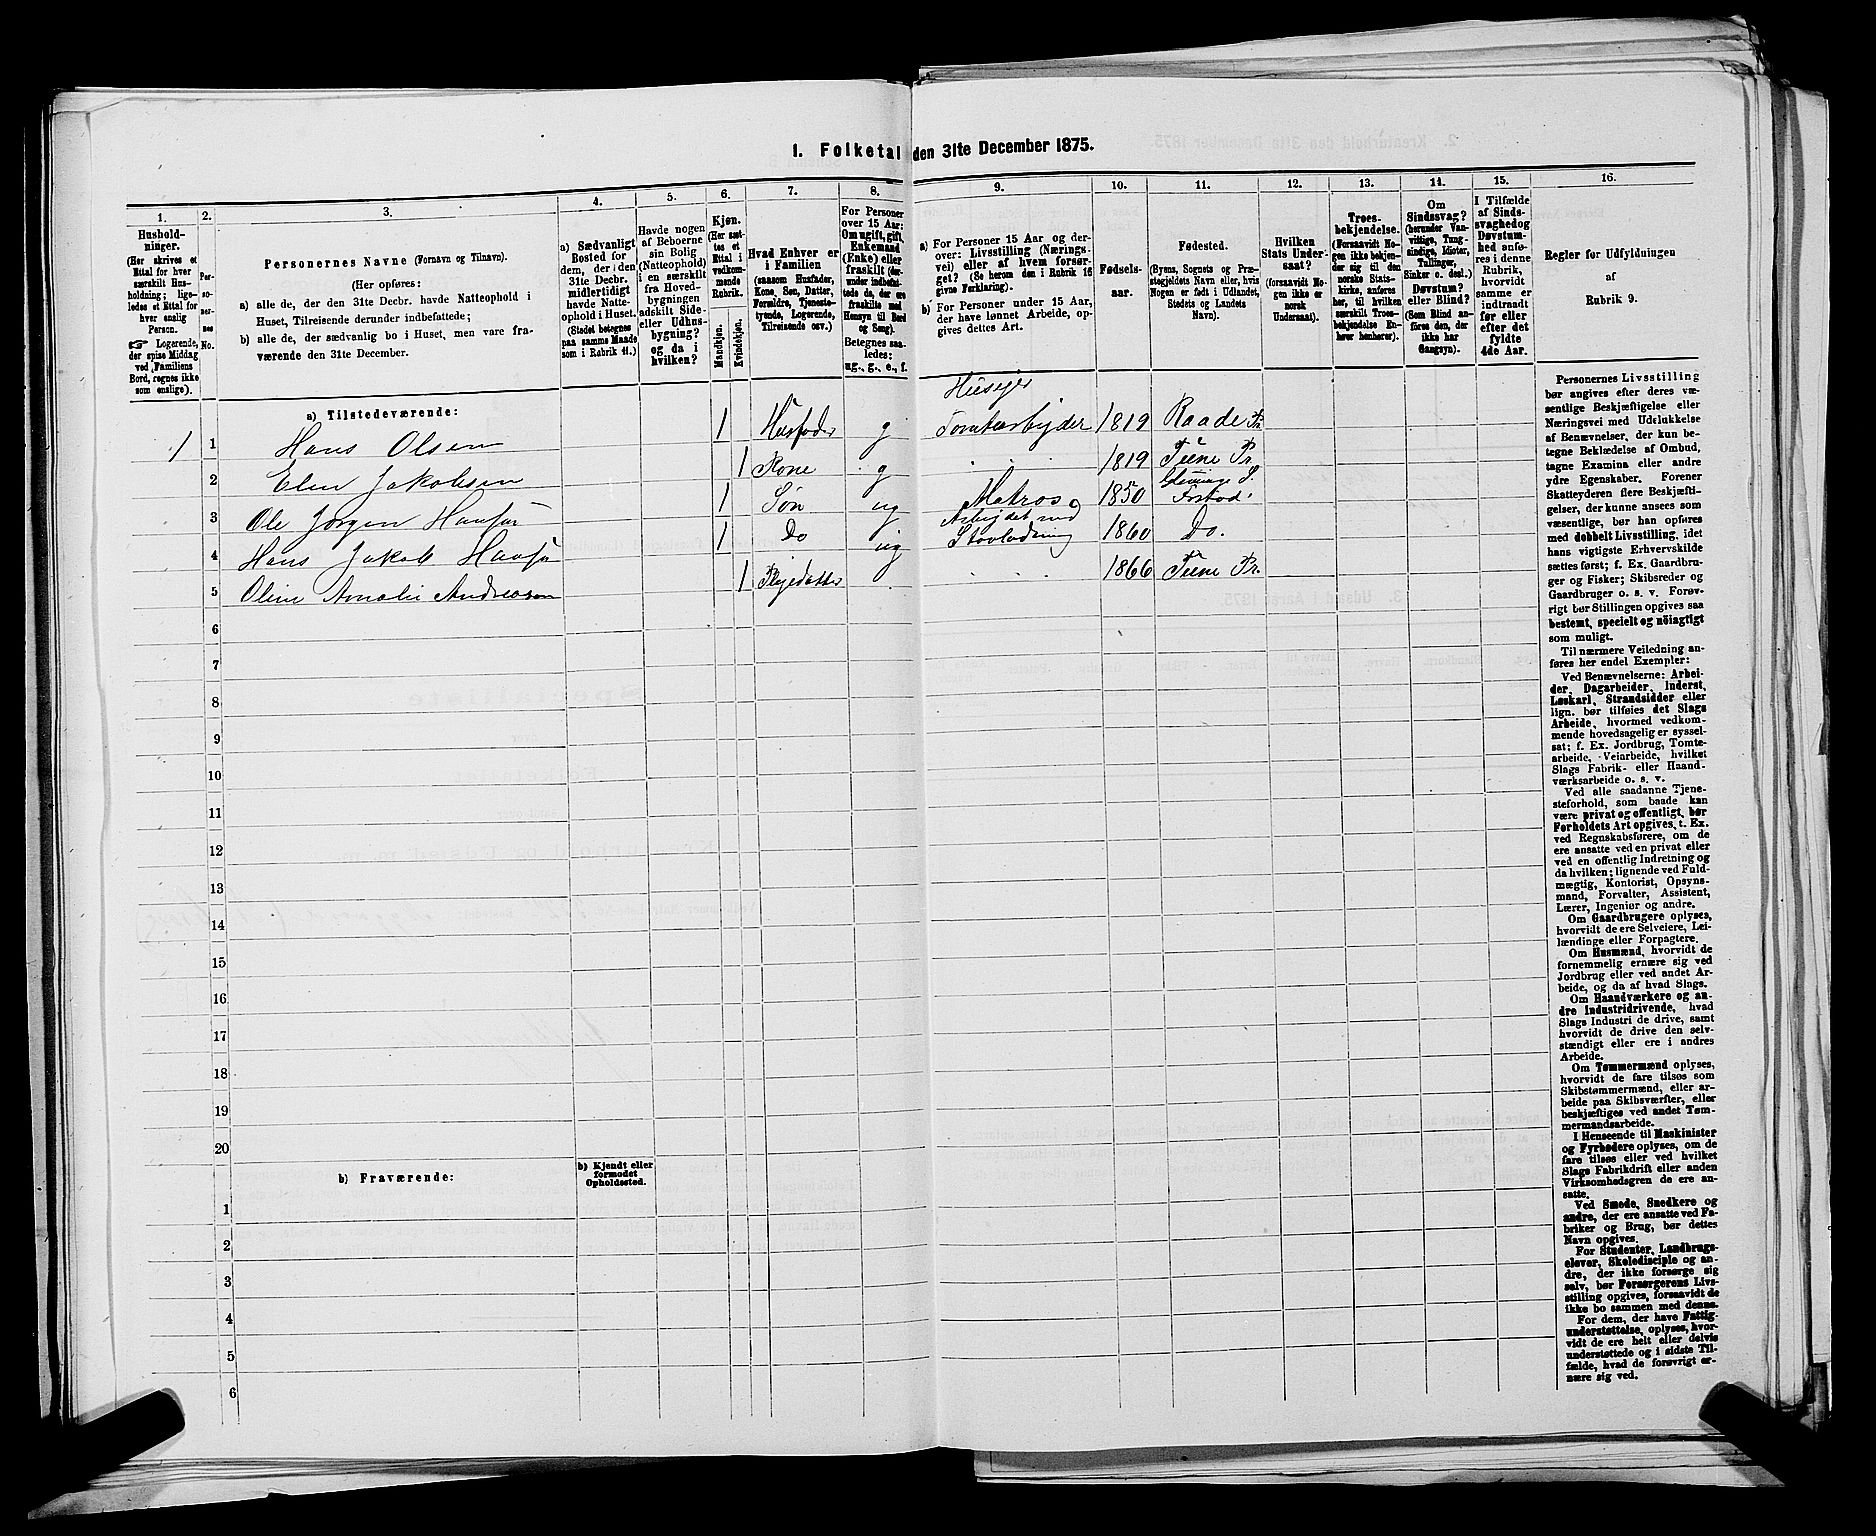 1. Folketal den 31te December 1875.
1. 2. 3. 4. 5. 6. 7. 8. 9. 10. 11. 12. 13. 14. 15. 16.
Hushold-
ninger.
(Her skrives et
Ettal for hver
særskilt Hus-
holdning; lige-
ledes et Ettal for
hver enslig
Person.
☞ Logerende,
der spise Middag
ved Familiens
Bord, regnes ikke
som enslige).
Per-
so-
ner-
nes
No.
Personernes Navne (Fornavn og Tilnavn).
(Her opføres:
a) alle de, der den 31te Decbr. havde Natteophold i
Huset, Tilreisende derunder indbefattede;
b) alle de, der sædvanlig bo i Huset, men vare fra-
værende den 31te December.
a) Sædvanligt
Bosted for
dem, der den
31te Decbr.
midlertidigt
havde Natte-
ophold i Huset.
(Stedet betegnes
paa samme Maade
som i Rubrik 11.)
Havde nogen
af Beboerne
sin Bolig
(Natteophold)
i en særskilt
fra Hoved-
bygningen
adskilt Side-
eller Udhus-
bygning?
og da i
hvilken?
Kjøn.
(Her sæt-
tes et
Ettal i
vedkom-
mende
Rubrik.
Mandkjøn.
Kvindekjøn.
Hvad Enhver er
i Familien
(saasom Husfader,
Kone, Søn, Datter,
Forældre, Tjeneste-
tyende, Logerende,
Tilreisende osv.)
For Personer
over 15 Aar:
Om ugift, gift,
Enkemand
(Enke) eller
fraskilt (der-
under indbefat-
tede de, der ere
fraskilte med
Hensyn til Bord
og Seng).
Betegnes saa-
ledes:
ug., g., e., f.
a) For Personer 15 Aar og der-
over: Livsstilling (Nærings-
vei) eller af hvem forsør-
get? (Se herom den i Rubrik 16
givne Forklaring).
b) For Personer under 15 Aar,
der have lønnet Arbeide, op-
gives dettes Art.
Fødsels-
aar.
Fødested.
(Byens, Sognets og Præ-
stegjeldets Navn eller, hvis
Nogen er født i Udlandet,
Stedets og Landets
Navn).
Hvilken
Stats Under-
saat?
(forsaavidt No-
gen ikke er
norsk
Undersaat).
Troes-
bekjendelse.
(Forsaavidt No-
gen ikke bekjen-
der sig til den
norske Stats-
kirke, anføres
her, til hvilken
særskilt Troes-
bekjendelse En-
hver henhører).
Om
Sindssvag?
(herunder Van-
vittige, Tung-
sindige, Idioter,
Tullinger,
Sinker o. desl.)
Døvstum?
eller Blind?
(Som Blind an-
føres den, der
ikke har
Gangsyn).
I Tilfælde
af Sinds-
svaghed og
Døvstum-
hed anfø-
res i denne
Rubrik,
hvorvidt
samme er
indtraadt
før eller
efter det
fyldte
4de Aar.
Regler for Udfyldningen
af
Rubrik 9.
a) Tilstedeværende:
Huseier
1 1 Hans Olsen 1 Husfader g Tomtearbeider 1819 Raade Pr
2 Elen Jakobsen 1 Kone g 1819 Tune Pr.
3 Ole Jørgen Hansen 1 Søn ug Matros 1850 Forstad
4 Hans Jakob Hansen 1 Do ug Arbeidet med Stavladning 1860 Do.
5 Oline Amalie Andreasen 1 Plejedatter 1866 Tune Pr.
6
7
8
9
10
11
12
13
14
15
16
17
18
19
20
b) Fraværende:
b) Kjendt eller
formodet
Opholdssted.
1
2
3
4
5
6
Personernes Livsstilling
bør angives efter deres væ-
sentlige Beskjæftigelse eller
Næringsvei med Udelukkelse
af Benævnelser, der kun be-
tegne Beklædelse af Ombud,
tagne Examina eller andre
ydre Egenskaber. Forener
Skatteyderen flere Beskjæfti-
gelser, der kunne ansees som
væsentlige, bør han opføres
med dobbelt Livsstilling, idet
hans vigtigste Erhvervskilde
sættes først; f. Ex. Gaardbru-
ger og Fisker; Skibsreder og
Gaardbruger o. s. v. Forøv-
rigt bør Stillingen opgives saa
bestemt, specielt og nöiagtigt
som muligt.
Til nærmere Veiledning an-
føres her endel Exempler:
Ved Benævnelserne: Arbei-
der, Dagarbeider, Inderst,
Løskarl, Strandsidder eller
lign. bør tilføies det Slags
Arbeide, hvormed vedkom-
mende hovedsagelig er syssel-
sat; f. Ex. Jordbrug, Tomte-
arbeide, Veiarbeide, hvilket
Slags Fabrik- eller Haand-
værksarbeide o. s. v.
Ved alle saadanne Tjene-
steforhold, som baade kan
være privat og offentligt, bør
Forholdets Art opgives, t. Ex.
ved Regnskabsførere, om de
ere ansatte ved en privat eller
ved en offentlig Indretning og
da hvilken; lignende ved Fuld-
mægtig, Kontorist, Opsyns-
mand, Forvalter, Assistent,
Lærer, Ingeniør og andre.
Om Gaardbrugere oplyses,
hvorvidt de ere Selveiere, Lei-
lændinge eller Forpagtere.
Om Husmænd, hvorvidt de
fornemmelig ernære sig ved
Jordbrug eller ved andet Ar-
beide, og da af hvad Slags.
Om Haandværkere og an-
dre Industridrivende, hvad
Slags Industri de drive, samt
hvorvidt de drive den selv-
stændigt eller ere i andres
Arbeide.
Om Tømmermænd oplyses,
hvorvidt de fare tilsøs som
Skibstømmermænd, eller ar-
beide paa Skibsværfter, eller
beskjæftiges ved andet Tøm-
mermandsarbeide.
I Henseende til Maskinister
og Fyrbødere oplyses, om de
fare tilsøs eller ved hvilket
Slags Fabrikdrift eller anden
Virksomhedsgren de ere an-
satte.
Ved Smede, Snedkere og
andre, der ere ansatte ved Fa-
briker og Brug, bør dettes
Navn opgives.
For Studenter, Landbrugs-
elever, Skoledisciple og an-
dre, der ikke forsørge sig
selv, bør Forsørgerens Livs-
stilling opgives, forsaavidt de
ikke bo sammen med denne.
For dem, der have Fattig-
understøttelse, oplyses, hvor-
vidt de ere helt eller delvis
understøttede og i sidste Til-
fælde, hvad de forøvrigt er-
nære sig ved.